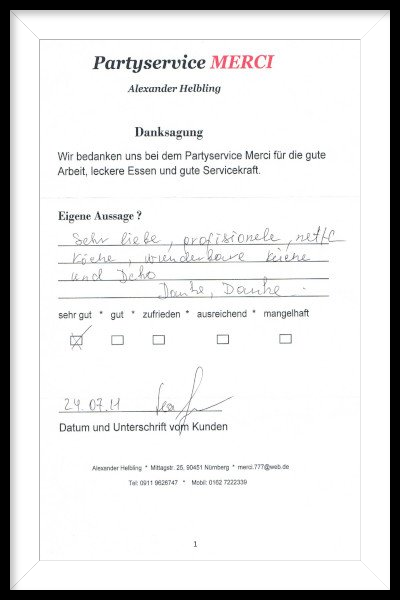 Partyservice MERCI
Alexander Helbling
Danksagung
Wir bedanken uns bei dem Partyservice Merci für die gute
Arbeit, leckere Essen und gute Servicekraft.
Eigene Aussage ?
Sehr liebe, profisionele, nette
Köche, wunderbare Küche
und Deko
Danke, Danke.
sehr gut * gut * zufrieden * ausreichend * mangelhaft
24.07.11
Datum und Unterschrift vom Kunden
Alexander Helbling * Mittagstr. 25, 90451 Nürnberg * merci.777@web.de
Tel: 0911 9626747 * Mobil: 0162 7222339
1